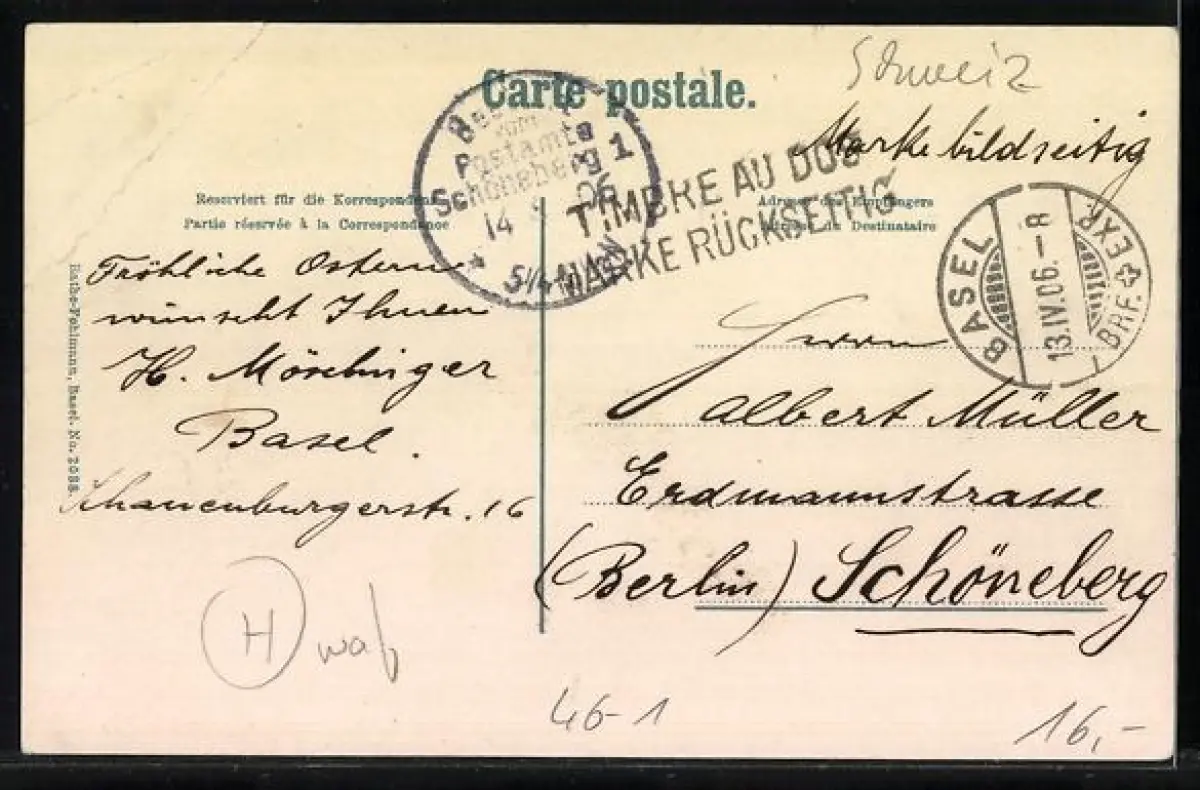 Schweiz
Carte postale.
Marke bildseitig
TIMBRE AU DOS
MARKE RÜCKSEITIG
vom
Postamte
Schöneberg 1
14 06
BASEL
13.IV.06.–8
BRF. EXP.
Reserviert für die Korrespondenz
Partie réservée à la Correspondance
Adresse des Empfängers
Adresse du Destinataire
Fröhliche Ostern
wünscht Ihnen
H. Mörchinger
Basel.
Schauenburgerstr. 16
Herrn
Albert Müller
Erdmannstrasse
(Berlin) Schöneberg
Rathe-Fehlmann, Basel. No. 2088.
H
46-1
16,-